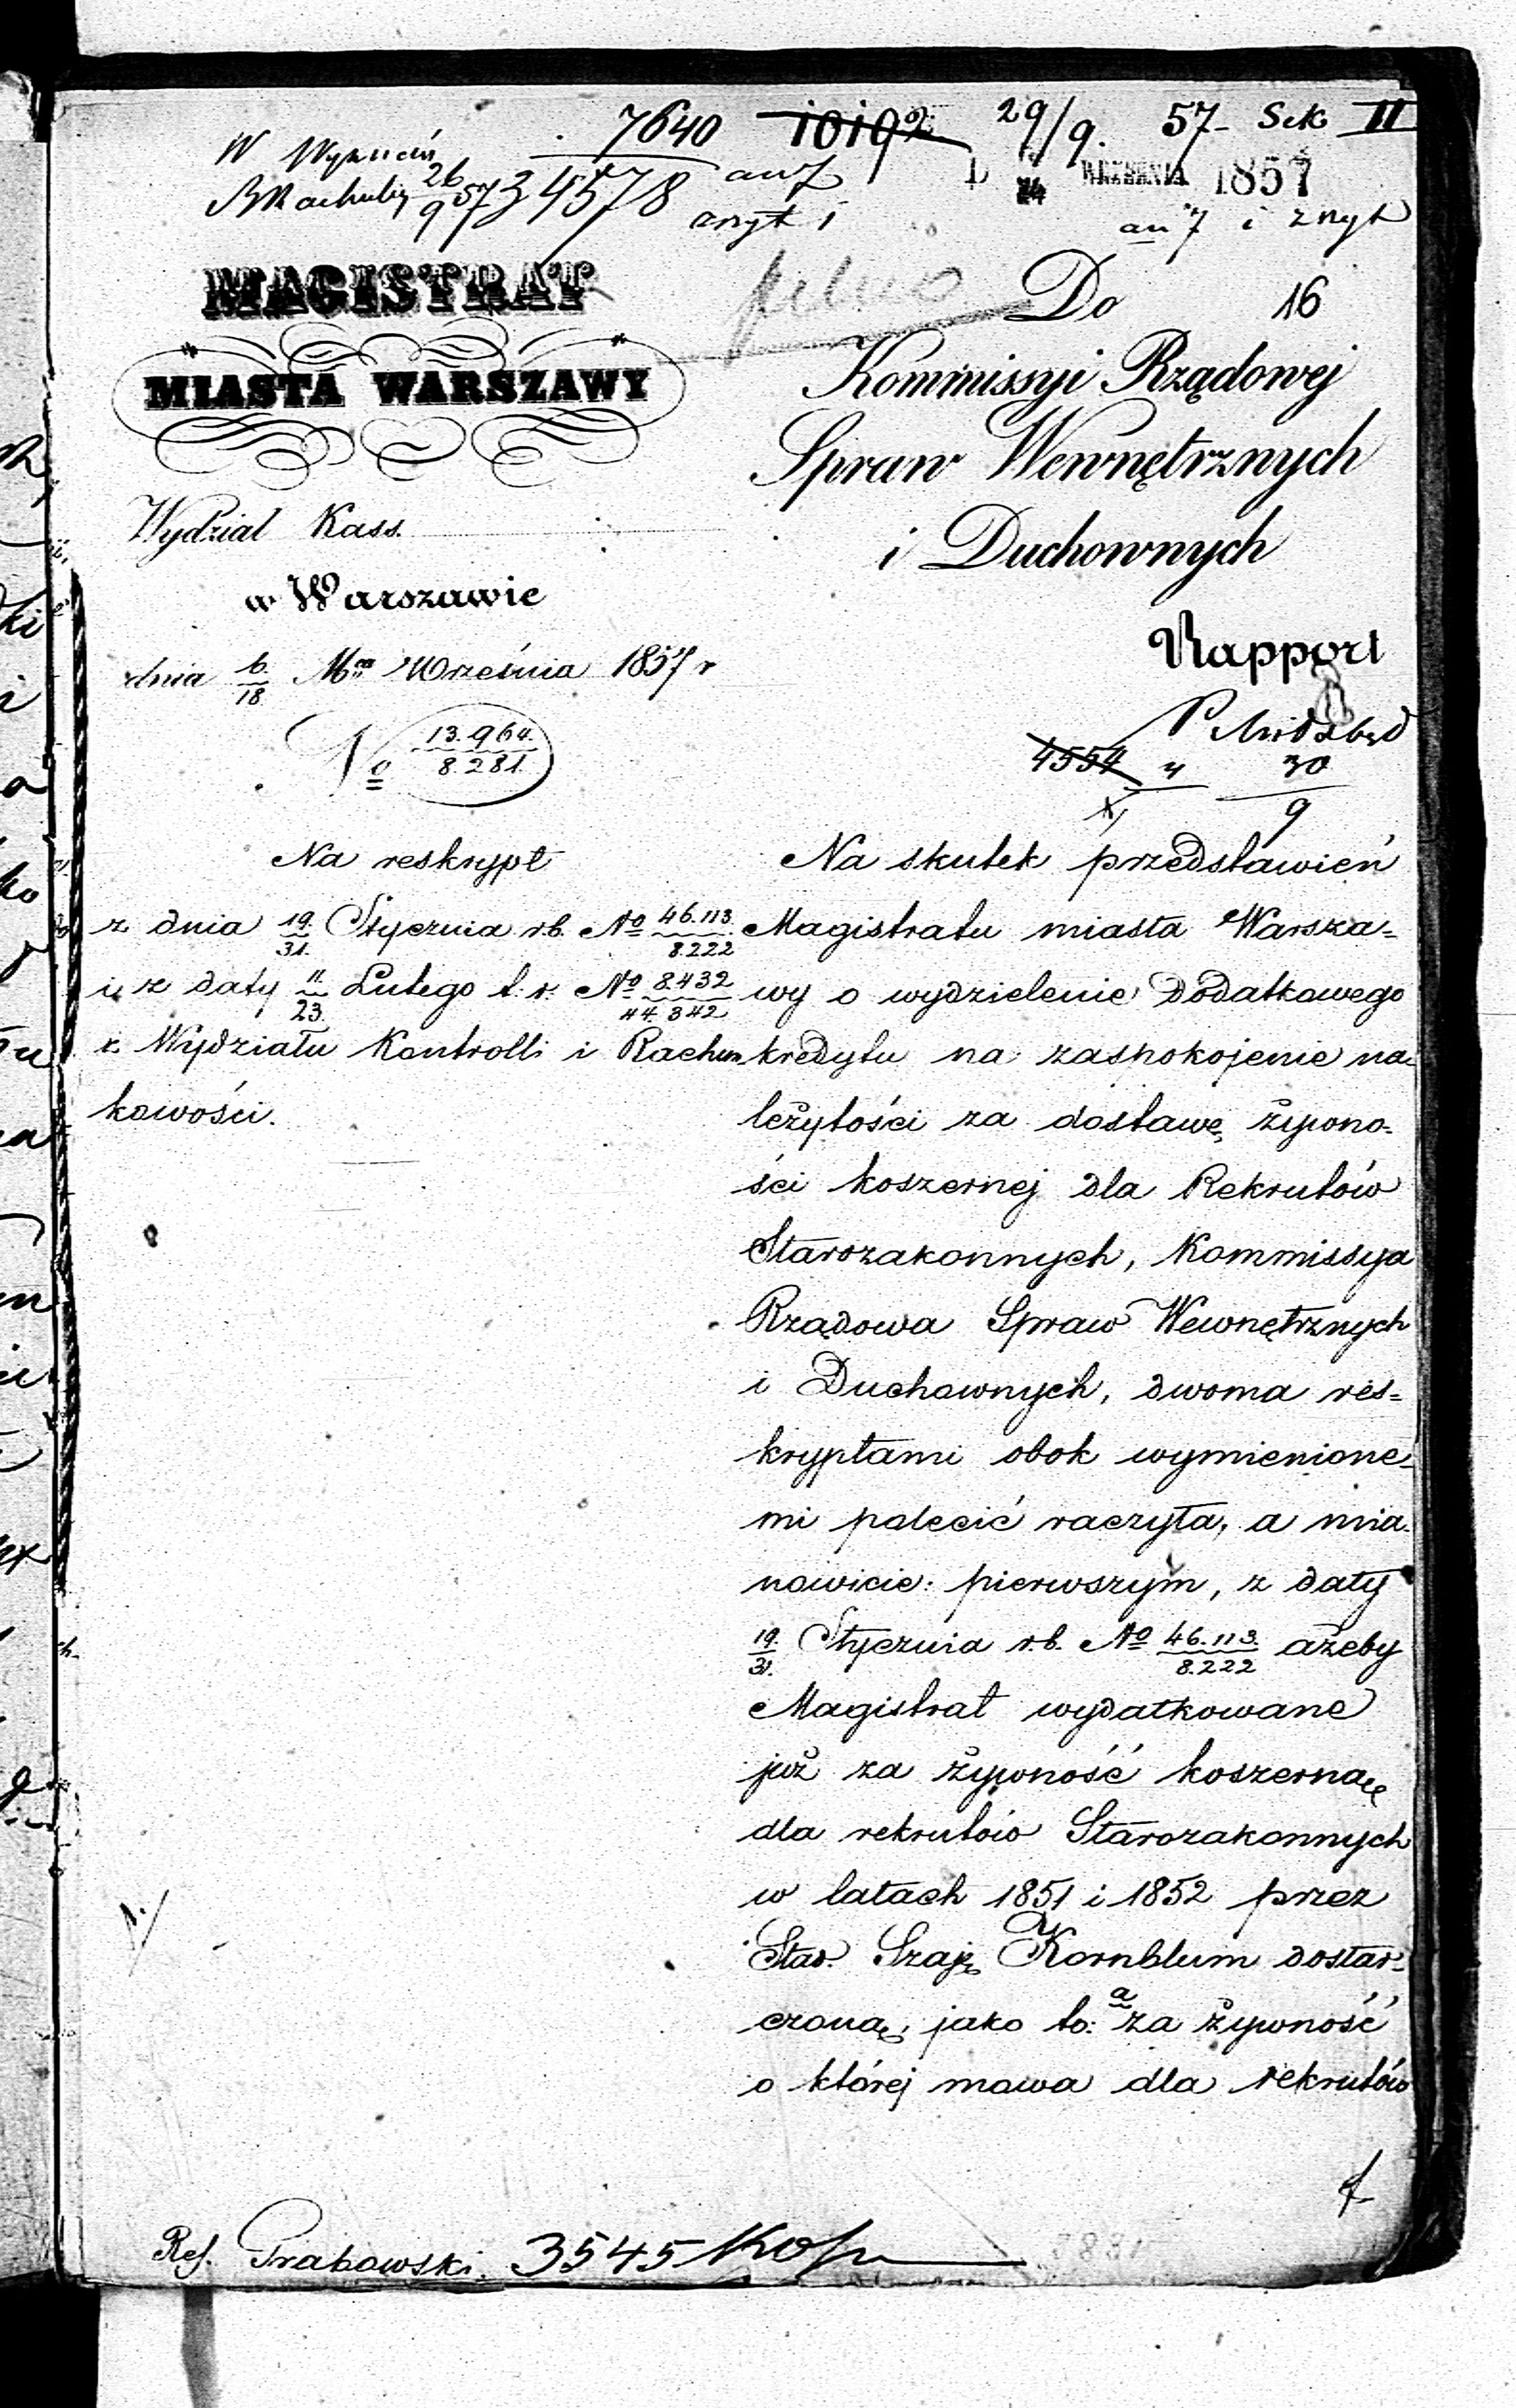 7640 10192 29/9. 57- Sek II
34578
26/9 57
WRZEŚNIA 1857
MAGISTRAT
MIASTA WARSZAWY
Wydział Kass.
w Warszawie
dnia 6/18 Mca Września 1857 r
No 13.964./8.281.
Do 16
Kommissyi Rządowej
Spraw Wewnętrznych
i Duchownych
Rapport
4554 30
9
Na reskrypt
z dnia 19./31. Stycznia r.b. No 46.113./8.222
i z daty 11/23. Lutego t.r. No 8.432/44.342
z Wydziału Kontrolli i Rachun
kowości.
Na skutek przedstawień
Magistratu miasta Warsza=
wy o wydzielenie Dodatkowego
kredytu na zaspokojenie na=
leżytości za dostawę żywno-
ści koszernej dla Rekrutów
Starozakonnych, Kommissya
Rządowa Spraw Wewnętrznych
i Duchownych, dwoma res=
kryptami obok wymienione-
mi polecić raczyła, a mia-
nowicie: pierwszym, z daty
19./31. Stycznia r.b. No 46.113./8.222 ażeby
Magistrat wydatkowane
już za żywność koszerną
dla rekrutów Starozakonnych
w latach 1851 i 1852 przez
Star. Szaję Kornblum dostar-
czoną, jako to: a za żywność
o której mowa dla rekrutów
Ref. Grabowski. 3545